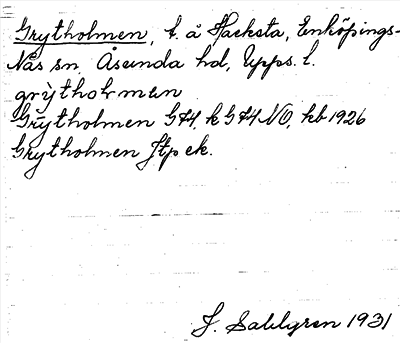 Grytholmen, t. å Hacksta, Enköpings-
Näs sn. Åsunda hd, Upps. l.
grỳtholmen
Grytholmen GH, k GHNO, hb 1926
Grytholmen Jtp ek.
J. Sahlgren 1931